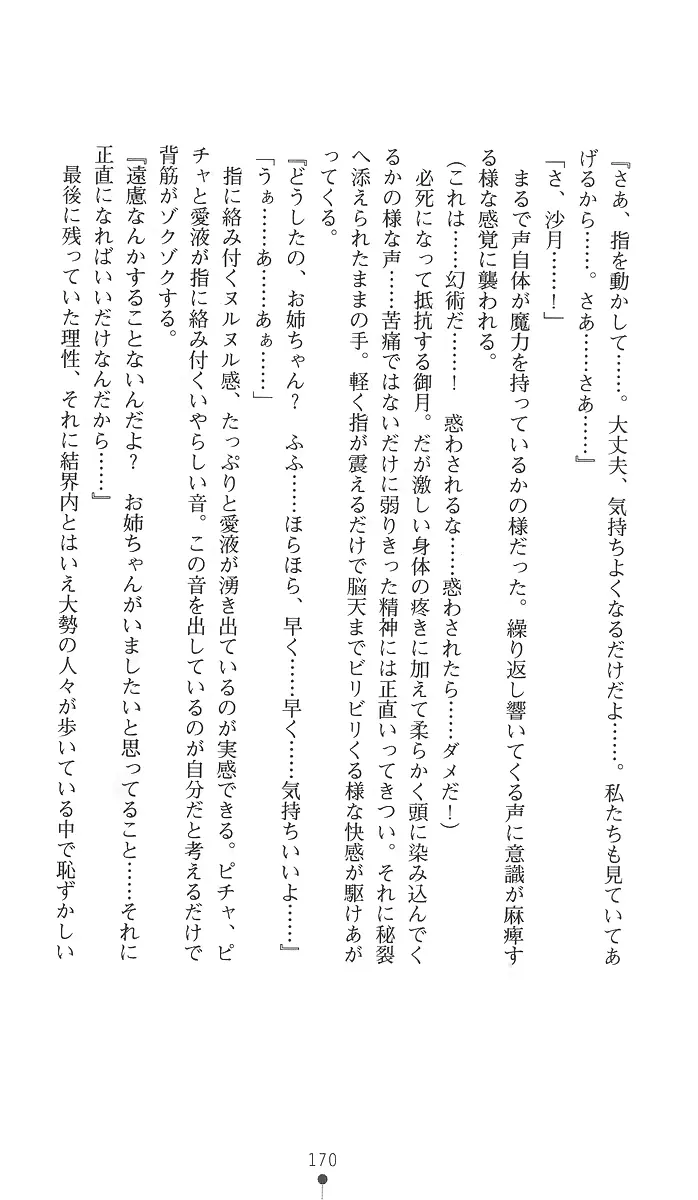 『さあ、指を動かして……。大丈夫、気持ちよくなるだけだよ……。私たちも見ていてあ
げるから……。さあ……さあ……』
「さ、沙月……！」
まるで声自体が魔力を持っているかの様だった。繰り返し響いてくる声に意識が麻痺す
る様な感覚に襲われる。
（これは……幻術だ……！　惑わされるな……惑わされたら……ダメだ！）
必死になって抵抗する御月。だが激しい身体の疼きに加えて柔らかく頭に染み込んでく
るかの様な声……苦痛ではないだけに弱りきった精神には正直いってきつい。それに秘裂
へ添えられたままの手。軽く指が震えるだけで脳天までビリビリくる様な快感が駆けあが
ってくる。
『どうしたの、お姉ちゃん？　ふふ……ほらほら、早く……早く……気持ちいいよ……』
「うぁ……あ……あぁ……」
指に絡み付くヌルヌル感、たっぷりと愛液が湧き出ているのが実感できる。ピチャ、ピ
チャと愛液が指に絡み付くいやらしい音。この音を出しているのが自分だと考えるだけで
背筋がゾクゾクする。
『遠慮なんかすることないんだよ？　お姉ちゃんがいましたいと思ってること……それに
正直になればいいだけなんだから……』
最後に残っていた理性、それに結界内とはいえ大勢の人々が歩いている中で恥ずかしい
170